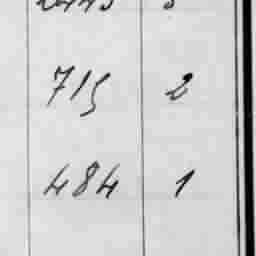 715 2
484 1